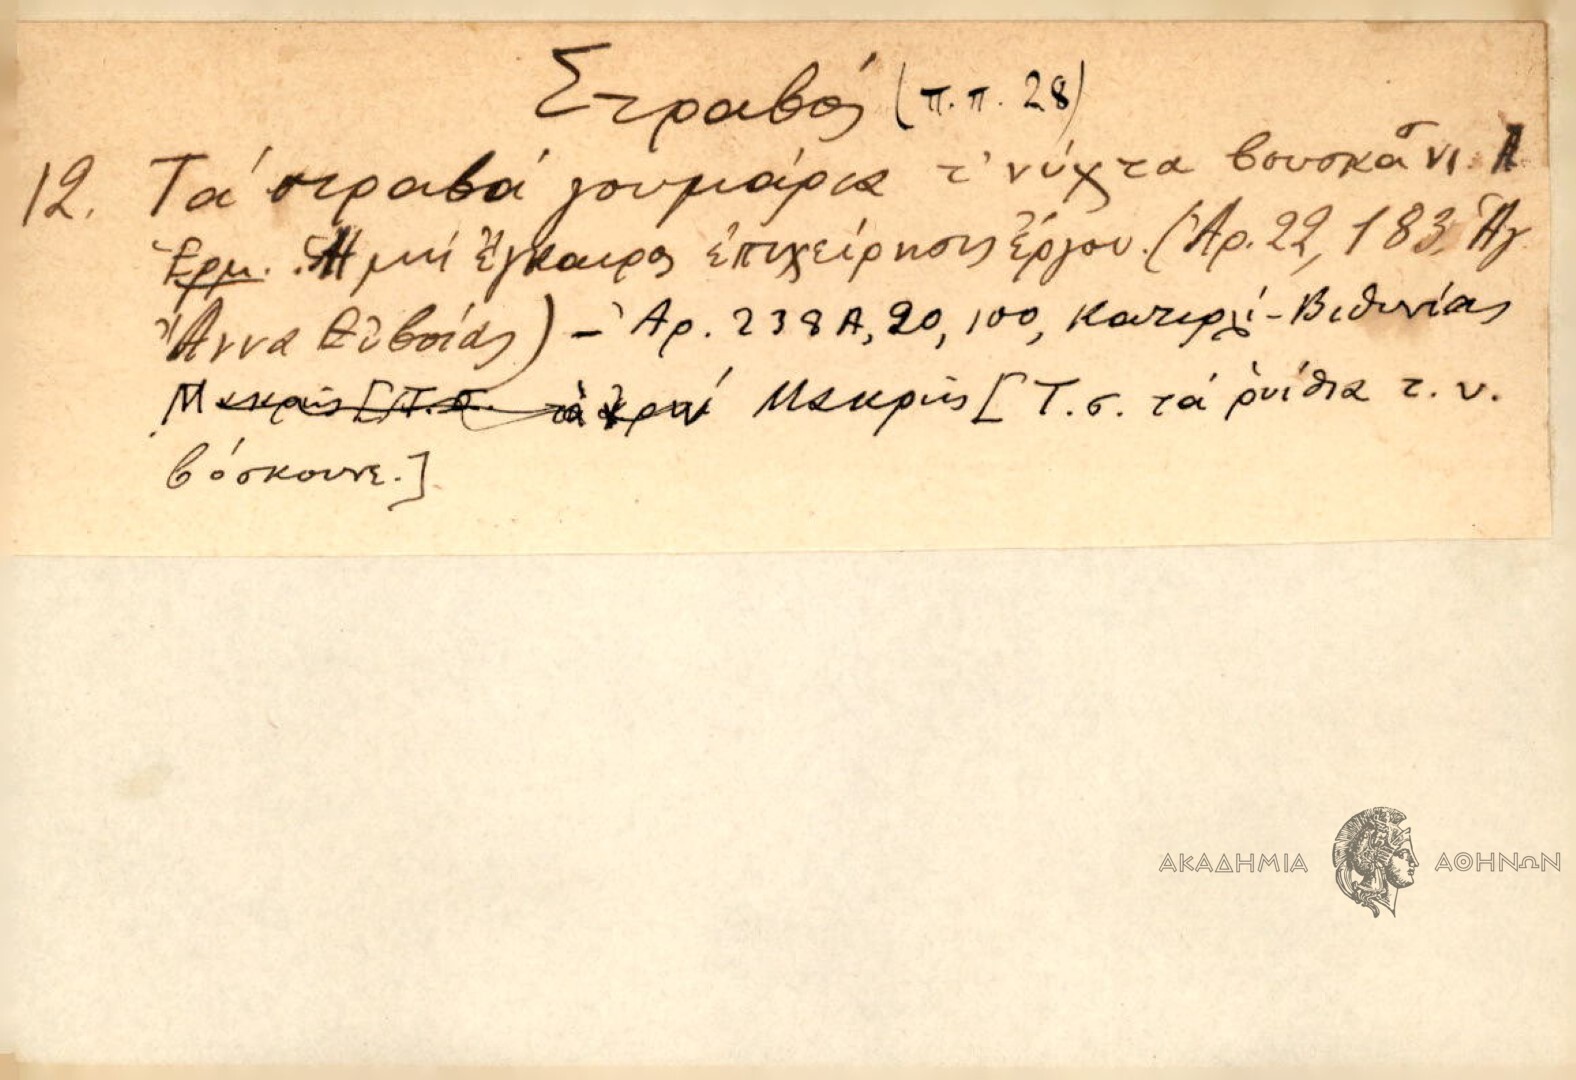 Στραβός (π.π. 28)
12. Τά στραβά γουμάρια τ' νύχτα βουσκᾶνι.
Ἑρμ. Ἡ μή ἔγκαιρος ἐπιχείρησις ἔργου. (Ἀρ. 22, 183, Ἁγ.
Ἄννα Εὐβοίας) – Ἀρ. 238Α, 20, 100, Κατιρλί - Βιθυνίας
Μακρῆς [Τ.σ. Μακρῆς [Τ.σ. τά ὀρνίθια τ. ν.
βόσκουνε.]
ΑΚΑΔΗΜΙΑ ΑΘΗΝΩΝ